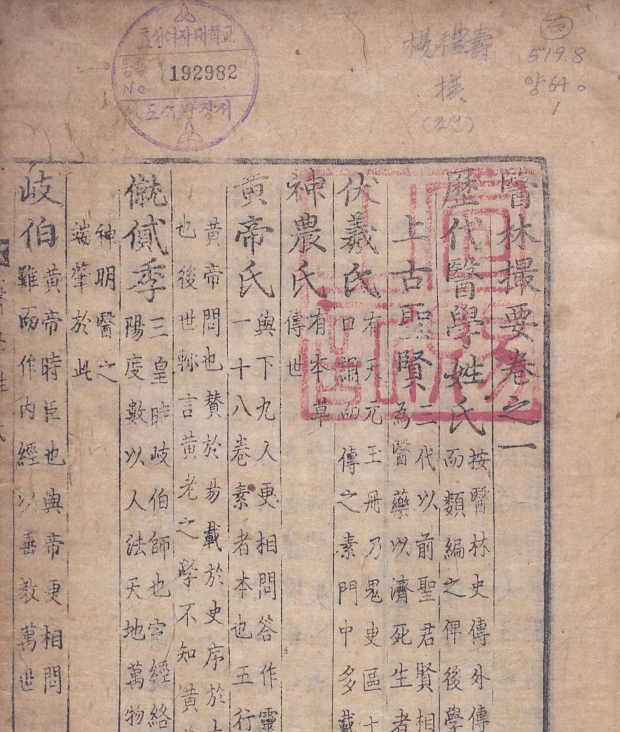 조선여자대학교
192982
No.
도서관장서
楊禮壽
撰
(조선)
519.8
양64ㅇ
1
醫林撮要卷之一
歷代醫學姓氏
按醫林史傳外傳
而類編之俾後學
上古聖賢
三代以前聖君賢相
為醫藥以濟死生者
伏羲氏
有天元玉冊乃鬼臾區十
口誦而傳之素問中多載
神農氏
有本草
傳世
黄帝氏
與下九人更相問答作靈
一十八卷素者本也五行
黄帝問也賛於易載於史序於
也後世稱言黄老之學不知黄
僦貸季
三皇時岐伯師也 經絡
陽度數以人法天地萬物
神明醫之
端肇於此
岐伯
黄帝時臣也與帝更相問
難而作内經以垂教萬世